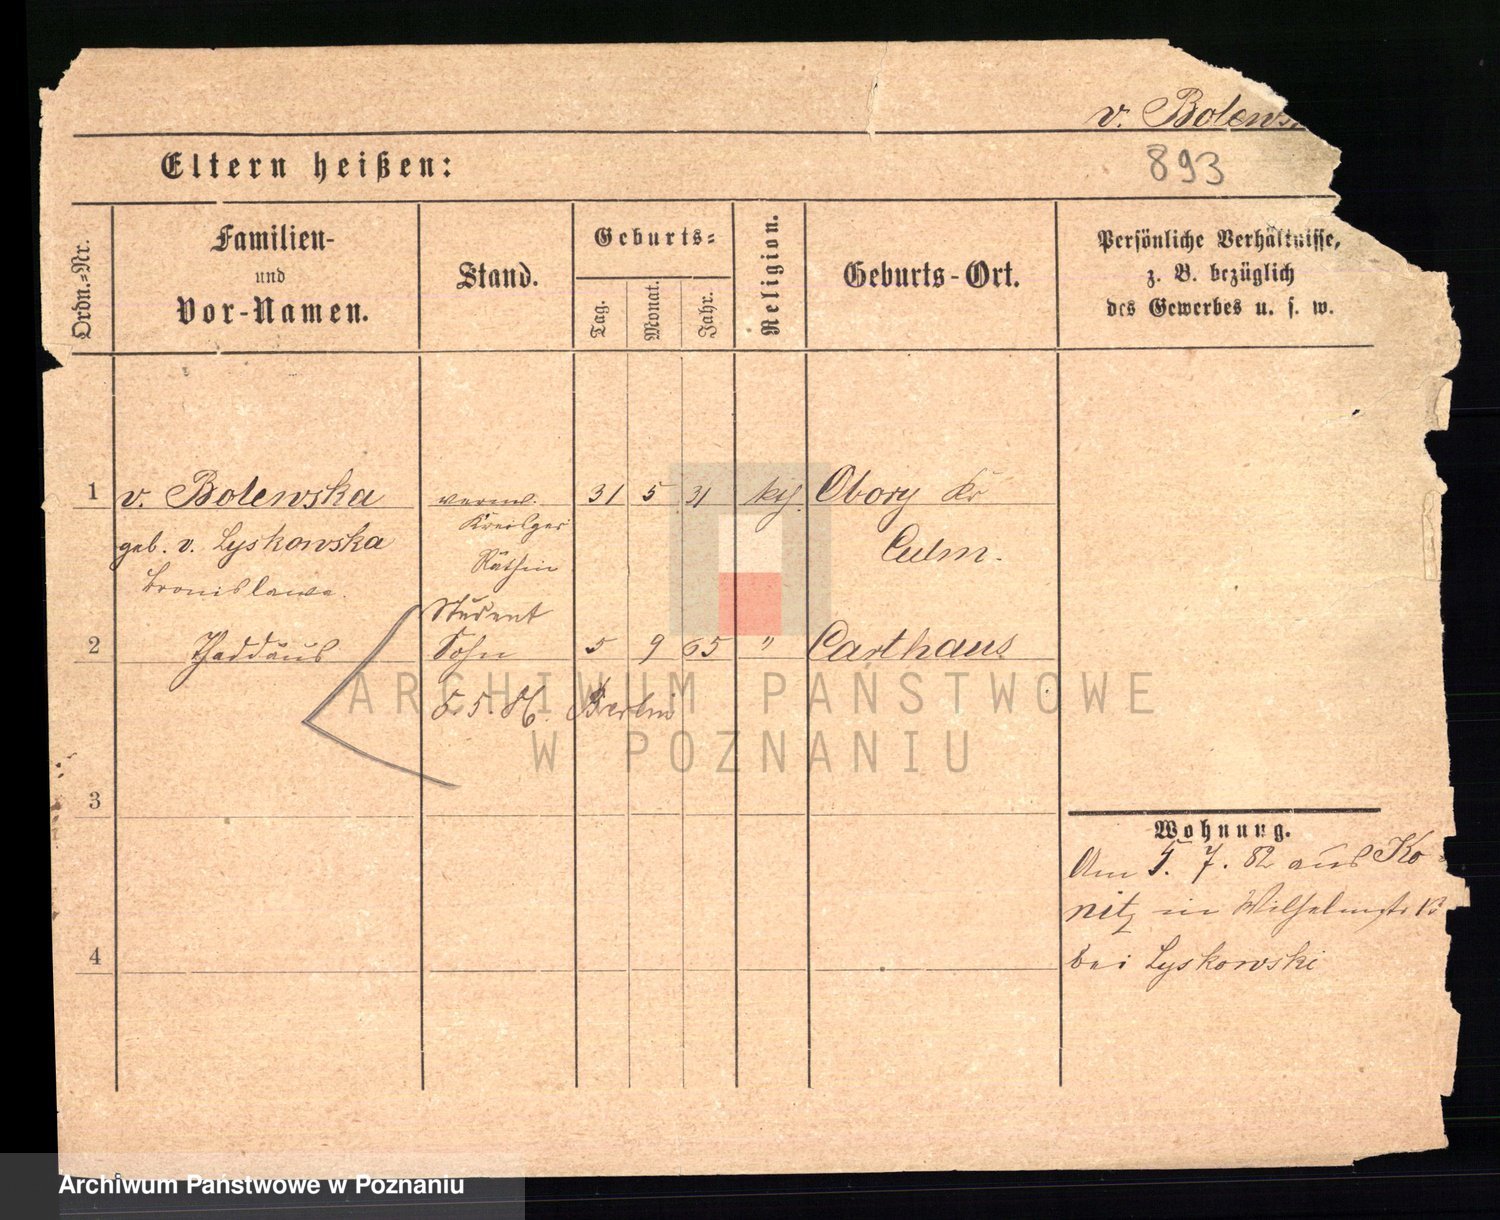 v. Bolews
Eltern heißen:
893
Ordn.-Nr.
Familien-
und
Vor-Namen.
Stand.
Geburts-
Tag.
Monat.
Jahr.
Religion.
Geburts-Ort.
Persönliche Verhältnisse,
z. B. bezüglich
des Gewerbes u. s. w.
1 v. Bolewska verw. 31 5 31 kth. Obory Kr
geb. v. Lyskowska Kreisger
Culm.
Räthin
Bronislawa.
Student
2 Thaddäus Sohn 5 9 65 " Carthaus
5.5.86. Berlin
ARCHIWUM PAŃSTWOWE
W POZNANIU
3
Wohnung.
Am 5. 7. 82 aus Ko
nitz in Wilhelmstr 13
4 bei Lyskowski
Archiwum Państwowe w Poznaniu